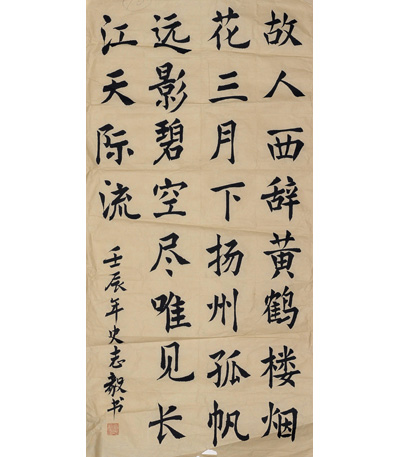 故人西辞黄鹤楼烟
花三月下扬州孤帆
远影碧空尽唯见长
江天际流
壬辰年史志毅书